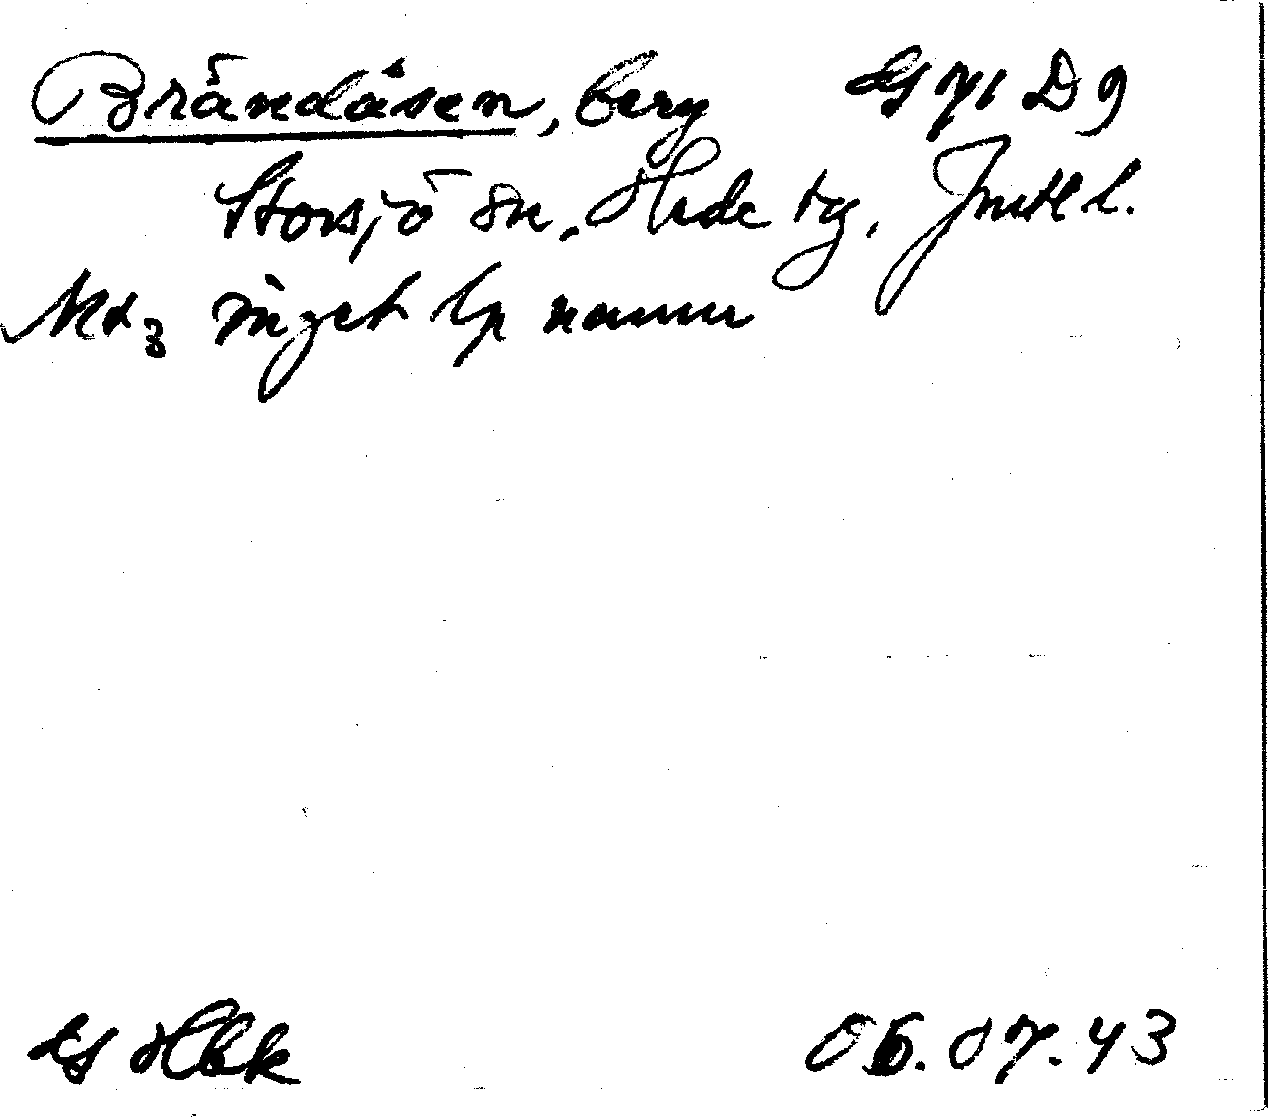 Brändåsen, berg GS 71 D 9
Storsjö sn, Hede tg, Jmtl l.
Mt3 inget lp namn
GS Hbk 06.07.43